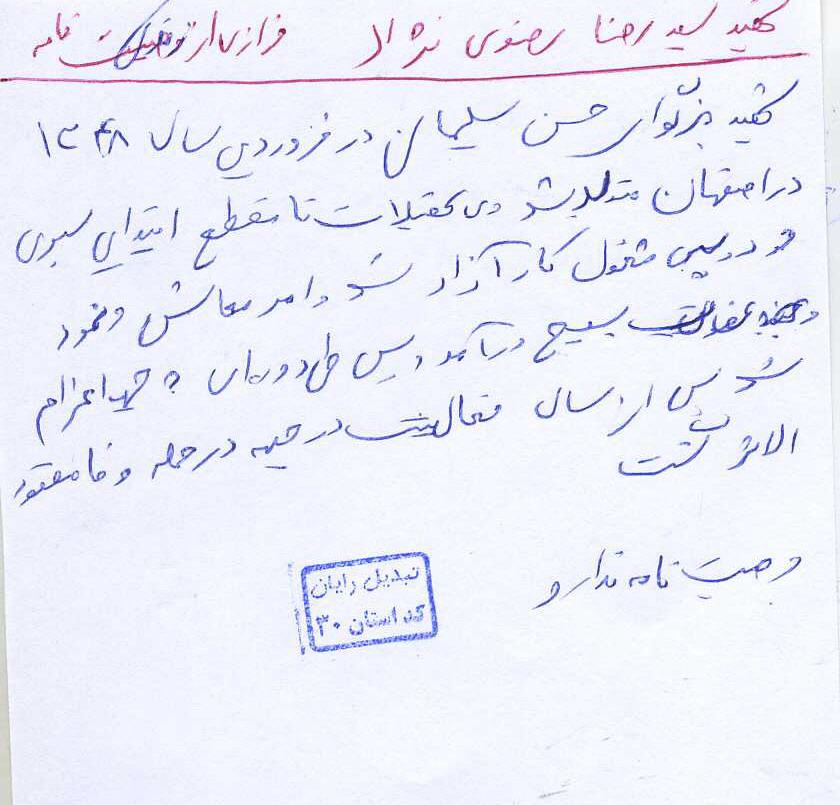 شهید سید رضا رضوی نژاد فرازی از وصیت نامه
شهید بزرگوار حسن سلیمانی در فروردین سال ۱۳۴۸
در اصفهان متولد شد وی تحصیلات تا مقطع ابتدایی سپری
و مشغول کار آزاد شد و امر معاش نمود
بسیج درآمد و پس طی دوره‌ای جبهه اعزام
شد پس از سال فعالیت در جبهه در حمله مفقود
الاثر گشت
وصیت نامه ندارد
تبدیل رایان
کد استان ۳۰